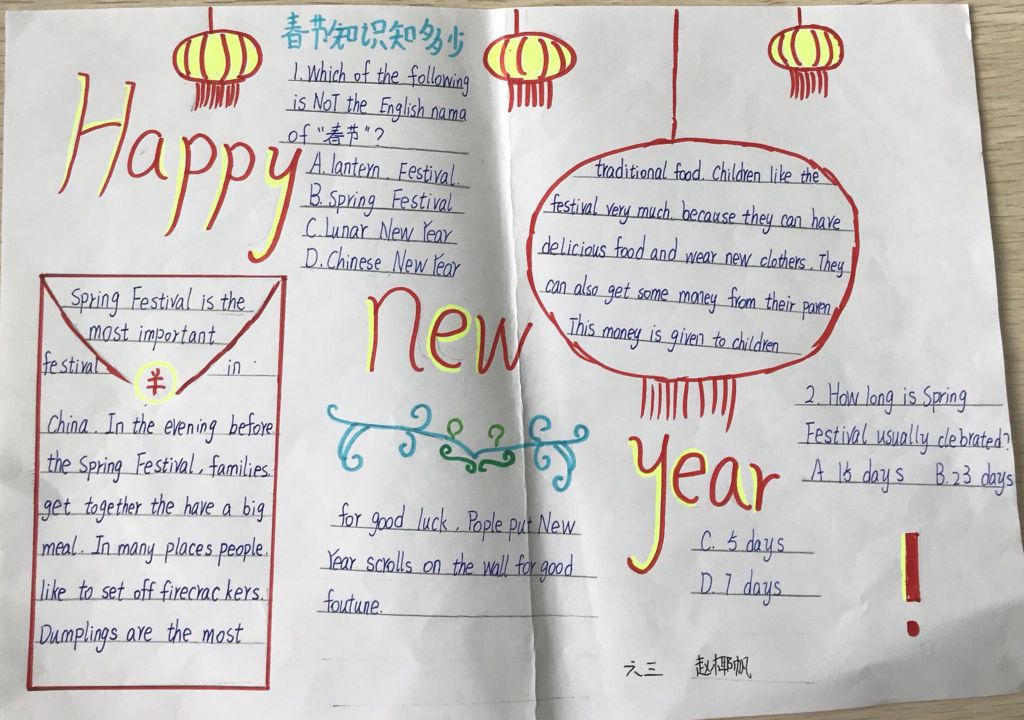 春节知识知多少
1. Which of the following
is NOT the English nama
of "春节"?
A. lantern Festival.
B. Spring Festival
C. Lunar New Year
D. Chinese New Year
Happy
new
year
!
Spring Festival is the
most important
festival in
羊
China. In the evening before
the Spring Festival, families
get together the have a big
meal. In many places people
like to set off firecrackers.
Dumplings are the most
traditional food. Children like the
festival very much, because they can have
delicious food and wear new clothers. They
can also get some maney from their paren
This money is given to children
for good luck. Pople put New
Year scrolls on the wall for good
foutune.
2. How long is Spring
Festival usually clebrated?
A 15 days B. 23 days
C. 5 days
D. 7 days
六三 赵椰帆